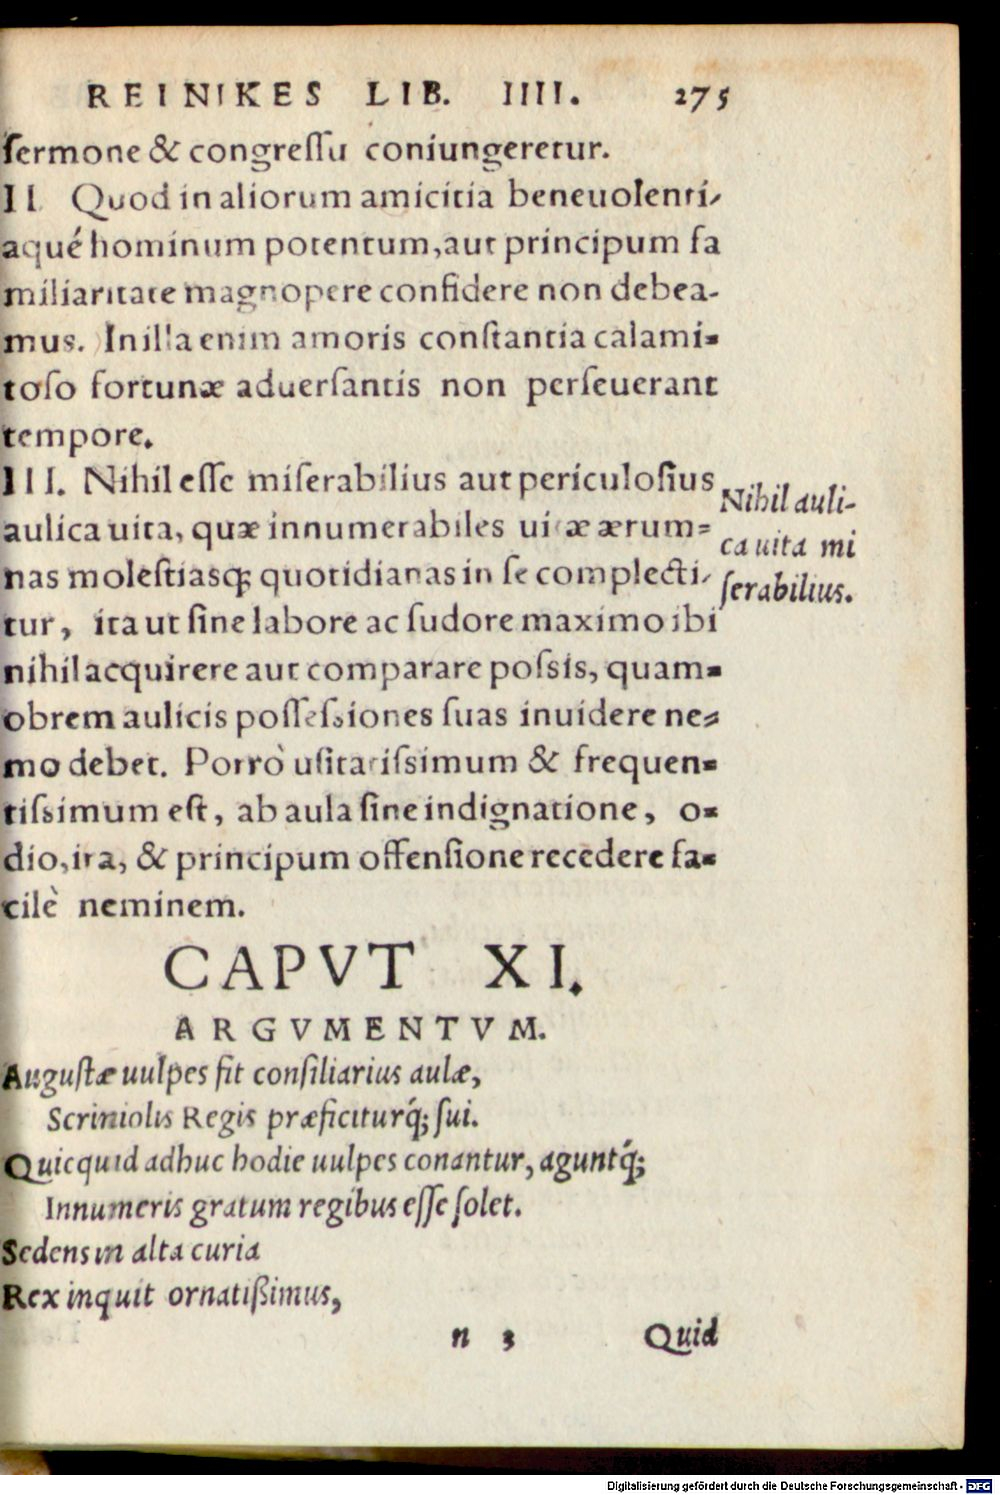 REINIKES LIB. IIII. 275
ſermone & congreſſu coniungeretur.
II. Quod in aliorum amicitia beneuolenti-
aqué hominum potentum, aut principum fa
miliaritate magnopere confidere non debea-
mus. In illa enim amoris conſtantia calami-
toſo fortunæ aduerſantis non perſeuerant
tempore.
III. Nihil eſſe miſerabilius aut periculoſius
aulica uita, quæ innumerabiles uitæ ærum-
nas moleſtiasq; quotidianas in ſe complecti-
tur, ita ut ſine labore ac ſudore maximo ibi
nihil acquirere aut comparare poſsis, quam-
obrem aulicis poſſeſsiones ſuas inuidere ne-
mo debet. Porrò uſitatiſsimum & frequen-
tiſsimum eſt, ab aula ſine indignatione, o-
dio, ira, & principum offenſione recedere fa-
cilè neminem.
Nihil auli-
ca uita mi
ſerabilius.
CAPVT XI.
ARGVMENTVM.
Auguſtæ uulpes fit conſiliarius aulæ,
Scriniolis Regis præficiturq́; ſui.
Quicquid adhuc hodie uulpes conantur, aguntq́;
Innumeris gratum regibus eſſe ſolet.
Sedens in alta curia
Rex inquit ornatißimus,
n 3 Quid
Digitalisierung gefördert durch die Deutsche Forschungsgemeinschaft - DFG